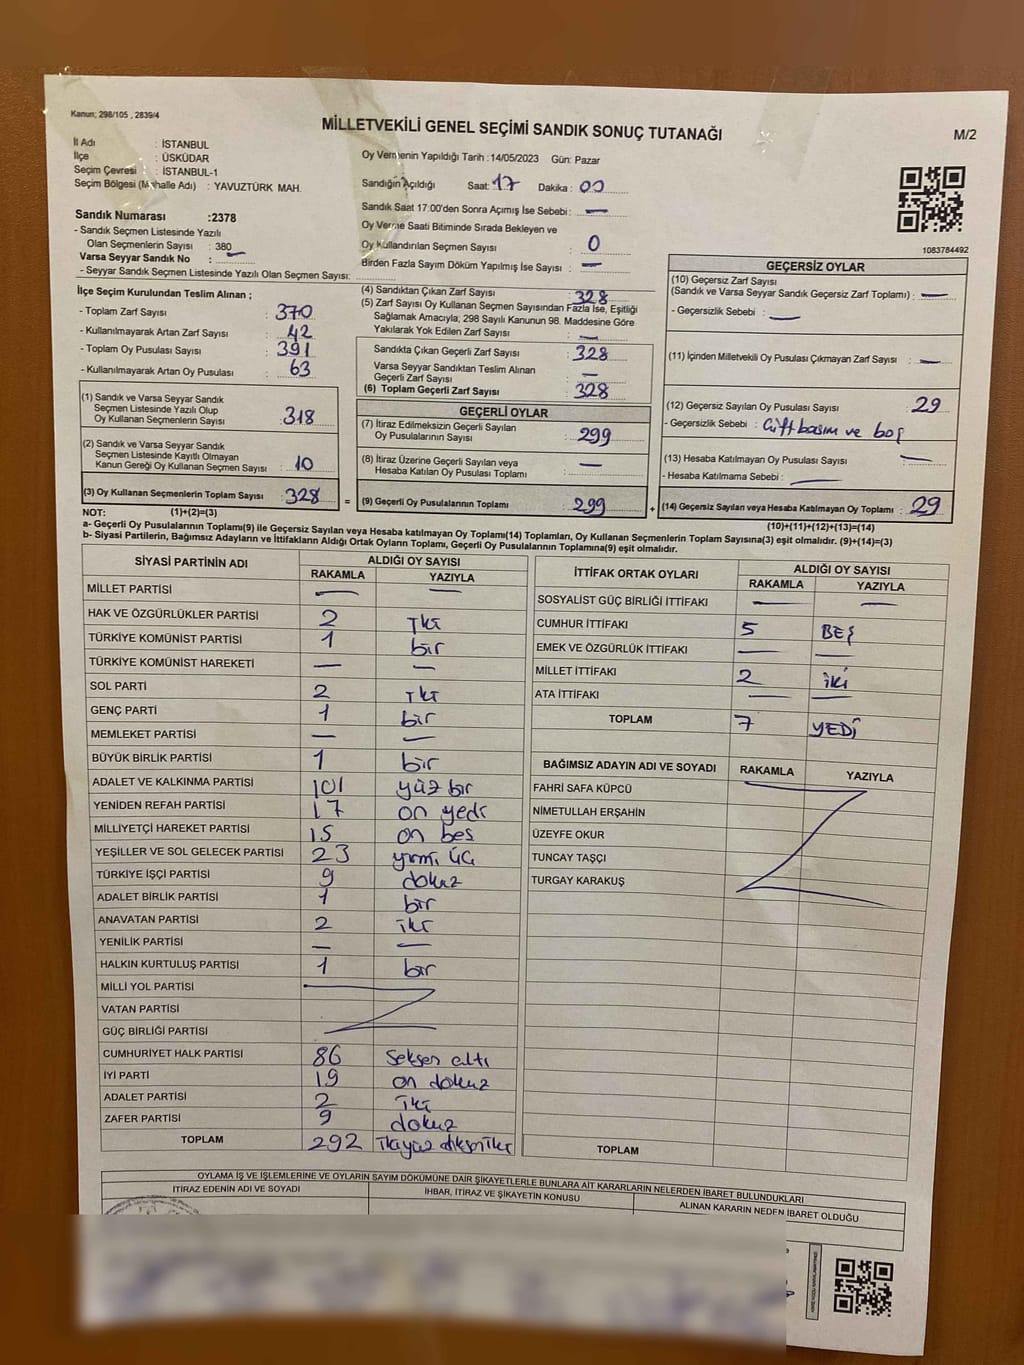 Kanun; 298/105 , 2839/4
MİLLETVEKİLİ GENEL SEÇİMİ SANDIK SONUÇ TUTANAĞI
M/2
İl Adı : İSTANBUL
İlçe : ÜSKÜDAR
Seçim Çevresi : İSTANBUL-1
Seçim Bölgesi (Mahalle Adı) : YAVUZTÜRK MAH.
Sandık Numarası :2378
- Sandık Seçmen Listesinde Yazılı
Olan Seçmenlerin Sayısı : 380
Varsa Seyyar Sandık No : —
- Seyyar Sandık Seçmen Listesinde Yazılı Olan Seçmen Sayısı:
Oy Vermenin Yapıldığı Tarih :14/05/2023 Gün: Pazar
Sandığın Açıldığı Saat: 17 Dakika : 00
Sandık Saat 17:00'den Sonra Açımış İse Sebebi : —
Oy Verme Saati Bitiminde Sırada Bekleyen ve
Oy Kullandırılan Seçmen Sayısı : 0
Birden Fazla Sayım Döküm Yapılmış İse Sayısı : —
1083784492
İlçe Seçim Kurulundan Teslim Alınan ;
- Toplam Zarf Sayısı : 370
- Kullanılmayarak Artan Zarf Sayısı : 42
- Toplam Oy Pusulası Sayısı : 391
- Kullanılmayarak Artan Oy Pusulası : 63
(1) Sandık ve Varsa Seyyar Sandık
Seçmen Listesinde Yazılı Olup
Oy Kullanan Seçmenlerin Sayısı : 318
(2) Sandık ve Varsa Seyyar Sandık
Seçmen Listesinde Kayıtlı Olmayan
Kanun Gereği Oy Kullanan Seçmen Sayısı : 10
(3) Oy Kullanan Seçmenlerin Toplam Sayısı : 328 =
(4) Sandıktan Çıkan Zarf Sayısı : 328
(5) Zarf Sayısı Oy Kullanan Seçmen Sayısından Fazla İse, Eşitliği
Sağlamak Amacıyla; 298 Sayılı Kanunun 98. Maddesine Göre
Yakılarak Yok Edilen Zarf Sayısı : —
Sandıkta Çıkan Geçerli Zarf Sayısı : 328
Varsa Seyyar Sandıktan Teslim Alınan
Geçerli Zarf Sayısı : —
(6) Toplam Geçerli Zarf Sayısı : 328
GEÇERLİ OYLAR
(7) İtiraz Edilmeksizin Geçerli Sayılan
Oy Pusulalarının Sayısı : 299
(8) İtiraz Üzerine Geçerli Sayılan veya
Hesaba Katılan Oy Pusulası Toplamı : —
(9) Geçerli Oy Pusulalarının Toplamı : 299 +
GEÇERSİZ OYLAR
(10) Geçersiz Zarf Sayısı
(Sandık ve Varsa Seyyar Sandık Geçersiz Zarf Toplamı) : —
- Geçersizlik Sebebi : —
(11) İçinden Milletvekili Oy Pusulası Çıkmayan Zarf Sayısı : —
(12) Geçersiz Sayılan Oy Pusulası Sayısı : 29
- Geçersizlik Sebebi : Çift basım ve boş
(13) Hesaba Katılmayan Oy Pusulası Sayısı : —
- Hesaba Katılmama Sebebi : —
(14) Geçersiz Sayılan veya Hesaba Katılmayan Oy Toplamı : 29
NOT: (1)+(2)=(3)
(10)+(11)+(12)+(13)=(14)
a- Geçerli Oy Pusulalarının Toplamı(9) ile Geçersiz Sayılan veya Hesaba katılmayan Oy Toplamı(14) Toplamları, Oy Kullanan Seçmenlerin Toplam Sayısına(3) eşit olmalıdır. (9)+(14)=(3)
b- Siyasi Partilerin, Bağımsız Adayların ve İttifakların Aldığı Ortak Oyların Toplamı, Geçerli Oy Pusulalarının Toplamına(9) eşit olmalıdır.
SİYASİ PARTİNİN ADI ALDIĞI OY SAYISI
RAKAMLA YAZIYLA
MİLLET PARTİSİ — —
HAK VE ÖZGÜRLÜKLER PARTİSİ 2 İki
TÜRKİYE KOMÜNİST PARTİSİ 1 bir
TÜRKİYE KOMÜNİST HAREKETİ — —
SOL PARTİ 2 İki
GENÇ PARTİ 1 bir
MEMLEKET PARTİSİ — —
BÜYÜK BİRLİK PARTİSİ 1 bir
ADALET VE KALKINMA PARTİSİ 101 yüz bir
YENİDEN REFAH PARTİSİ 17 on yedi
MİLLİYETÇİ HAREKET PARTİSİ 15 on beş
YEŞİLLER VE SOL GELECEK PARTİSİ 23 yirmi üç
TÜRKİYE İŞÇİ PARTİSİ 9 dokuz
ADALET BİRLİK PARTİSİ 1 bir
ANAVATAN PARTİSİ 2 iki
YENİLİK PARTİSİ — —
HALKIN KURTULUŞ PARTİSİ 1 bir
MİLLİ YOL PARTİSİ
VATAN PARTİSİ
GÜÇ BİRLİĞİ PARTİSİ
CUMHURİYET HALK PARTİSİ 86 seksen altı
İYİ PARTİ 19 on dokuz
ADALET PARTİSİ 2 iki
ZAFER PARTİSİ 9 dokuz
TOPLAM 292
İTTİFAK ORTAK OYLARI ALDIĞI OY SAYISI
RAKAMLA YAZIYLA
SOSYALİST GÜÇ BİRLİĞİ İTTİFAKI — —
CUMHUR İTTİFAKI 5 BEŞ
EMEK VE ÖZGÜRLÜK İTTİFAKI — —
MİLLET İTTİFAKI 2 iki
ATA İTTİFAKI — —
TOPLAM 7 YEDİ
BAĞIMSIZ ADAYIN ADI VE SOYADI RAKAMLA YAZIYLA
FAHRİ SAFA KÜPCÜ
NİMETULLAH ERŞAHİN
ÜZEYFE OKUR
TUNCAY TAŞÇI
TURGAY KARAKUŞ
TOPLAM
OYLAMA İŞ VE İŞLEMLERİNE VE OYLARIN SAYIM DÖKÜMÜNE DAİR ŞİKAYETLERLE BUNLARA AİT KARARLARIN NELERDEN İBARET BULUNDUKLARI
İTİRAZ EDENİN ADI VE SOYADI İHBAR, İTİRAZ VE ŞİKAYETİN KONUSU ALINAN KARARIN NEDEN İBARET OLDUĞU